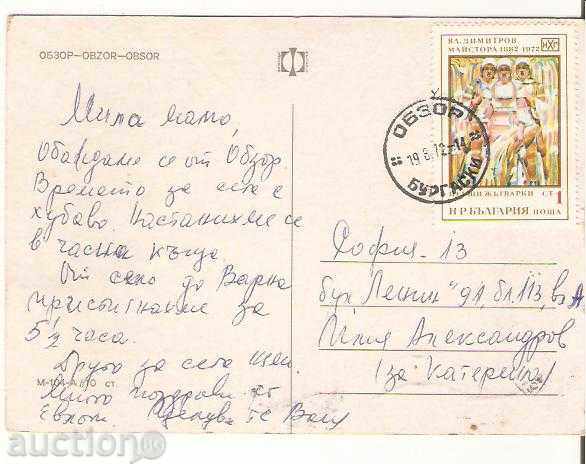 ОБЗОР—OBZOR—OBSOR
Мила мамо,
Обаждаме се от Обзор.
Времето за сега е
хубаво. Настанихме се
в частна къща
От село до Варна
пристигнахме за
5½ часа.
Друго за сега няма.
Много поздрави от
Целува те
М-104-А
ВЛ. ДИМИТРОВ
МАЙСТОРА 1882-1972
ЖЪТВАРКИ СТ 1
НР БЪЛГАРИЯ ПОЩА
ОБЗОР
19.8.72-14
БУРГАСКИ
София-13
бул "Ленин" бл. 113, вх А
Илия Александров
(за Катерина)
auction.bg